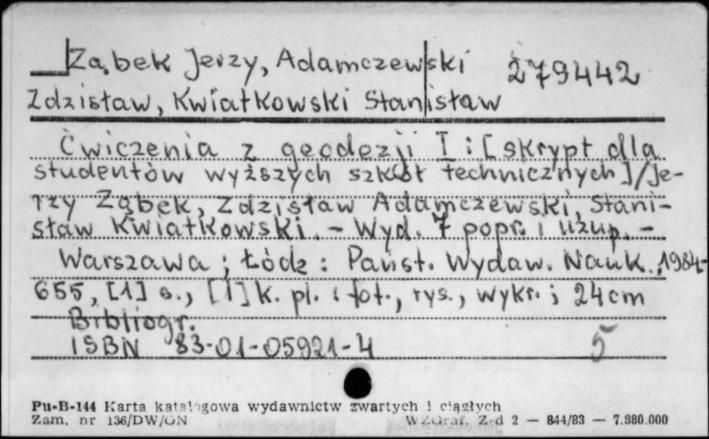 Ząbek Jerzy, Adamczewski 279442
Zdzisław, Kwiatkowski Stanisław
Ćwiczenia z geodezji I : [skrypt dla
studentów wyższych szkół technicznych]/Je-
rzy Ząbek, Zdzisław Adamczewski, Stani-
sław Kwiatkowski. - Wyd. 7 popr. i uzup. -
Warszawa ; Łódź : Państ. Wydaw. Nauk., 1984-
655, [1] s., [1] k. pl. : fot., rys., wykr. ; 24cm
Bibliogr.
ISBN 83-01-05921-4 5
Pu-B-144 Karta katalogowa wydawnictw zwartych i ciągłych
Zam. nr 136/DW/ON WZGraf. Z-d 2 — 844/83 — 7.880.000